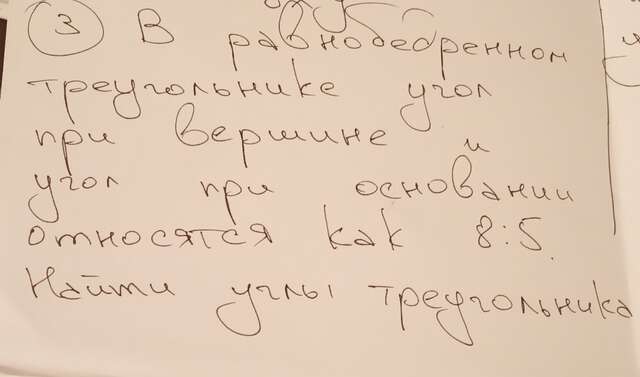 3 В равнобедренном
треугольнике угол
при вершине
и
угол при основании
относятся как 8:5.
Найти углы треугольника